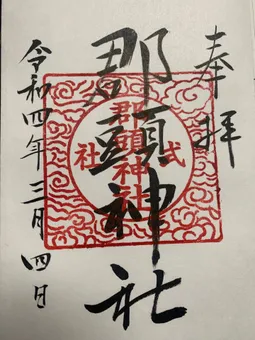 奉拝
郡頭神社
式社
郡頭神社
令和四年三月四日